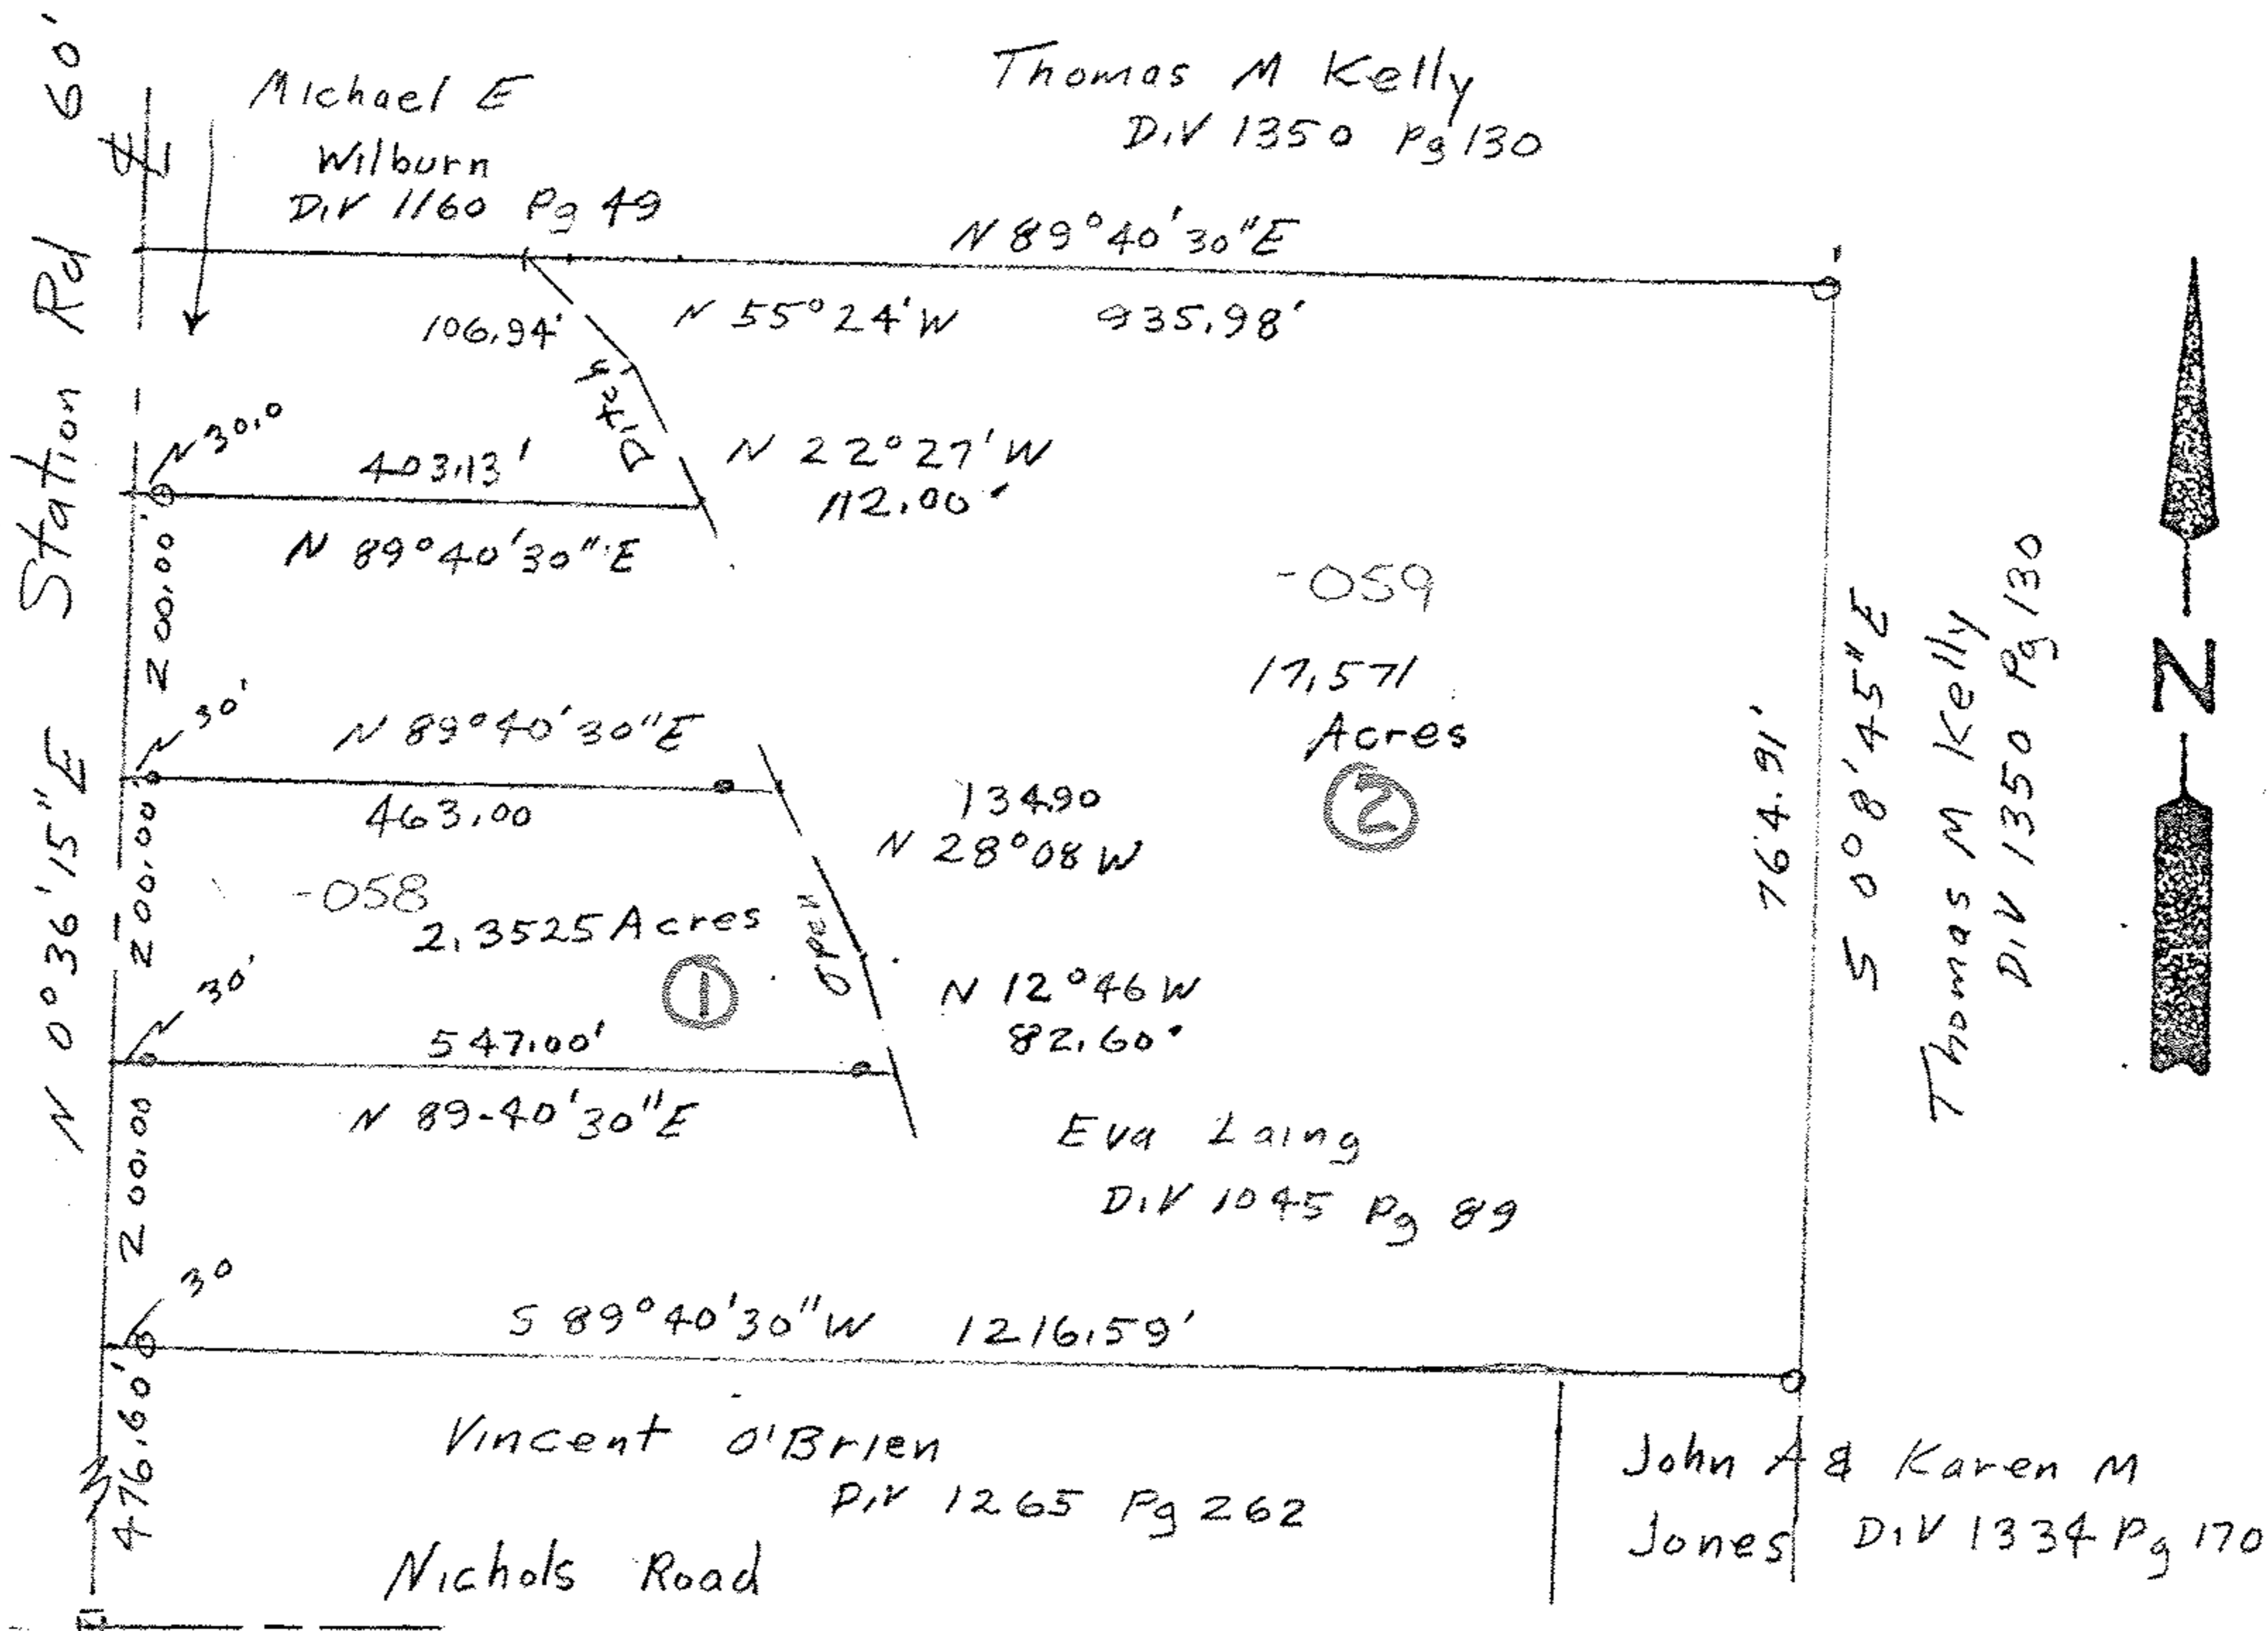 Station Rd 60'
N 0°36'15"E
Michael E
Wilburn
D.V 1160 Pg 49
Thomas M Kelly
D.V 1350 Pg 130
N 89°40'30"E
935.98'
106.94'
N 55°24'W
Ditch
N 30.0
403.13'
N 22°27'W
112.00'
N 89°40'30"E
200.00'
-059
17.571
Acres
2
N 30'
N 89°40'30"E
463.00
134.90
N 28°08 W
200.00'
-058
2.3525 Acres
1
open
N 12°46 W
82.60'
30'
547.00'
N 89-40'30"E
200.00
Eva Laing
D.V 1045 Pg 89
764.91'
S 0°8'45"E
Thomas M Kelly
D.V 1350 Pg 130
N
30
S 89°40'30"W 1216.59'
476.60'
Vincent O'Brien
D.V 1265 Pg 262
John A & Karen M
Jones D.V 1334 Pg 170
Nichols Road